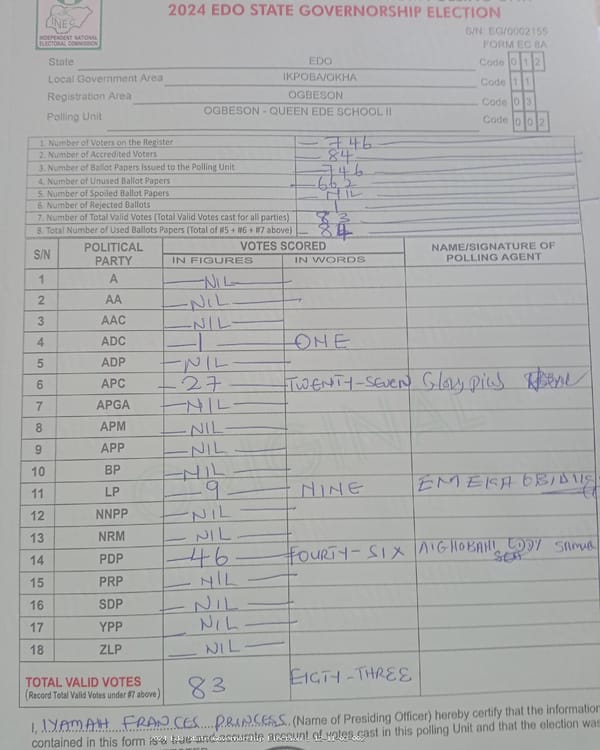 INEC
INDEPENDENT NATIONAL
ELECTORAL COMMISSION
2024 EDO STATE GOVERNORSHIP ELECTION
S/N: EG/0002155
FORM EC 8A
State EDO Code 0 1 2
Local Government Area IKPOBA/OKHA Code 1 1
Registration Area OGBESON Code 0 3
Polling Unit OGBESON - QUEEN EDE SCHOOL II Code 0 0 2
1. Number of Voters on the Register 746
2. Number of Accredited Voters 84
3. Number of Ballot Papers Issued to the Polling Unit 746
4. Number of Unused Ballot Papers 662
5. Number of Spoiled Ballot Papers NIL
6. Number of Rejected Ballots 1
7. Number of Total Valid Votes (Total Valid Votes cast for all parties) 83
8. Total Number of Used Ballots Papers (Total of #5 + #6 + #7 above) 84
S/N POLITICAL PARTY VOTES SCORED NAME/SIGNATURE OF POLLING AGENT
IN FIGURES IN WORDS
1 A NIL
2 AA NIL
3 AAC NIL
4 ADC 1 ONE
5 ADP NIL
6 APC 27 TWENTY-SEVEN Glory pius
7 APGA NIL
8 APM NIL
9 APP NIL
10 BP NIL
11 LP 9 NINE EMEKA
12 NNPP NIL
13 NRM NIL
14 PDP 46 FOURTY-SIX EDDY
15 PRP NIL
16 SDP NIL
17 YPP NIL
18 ZLP NIL
TOTAL VALID VOTES 83 EIGTY-THREE
(Record Total Valid Votes under #7 above)
I, IYAMAH FRANCES PRINCESS (Name of Presiding Officer) hereby certify that the information
contained in this form is a true and accurate account of votes cast in this polling Unit and that the election was